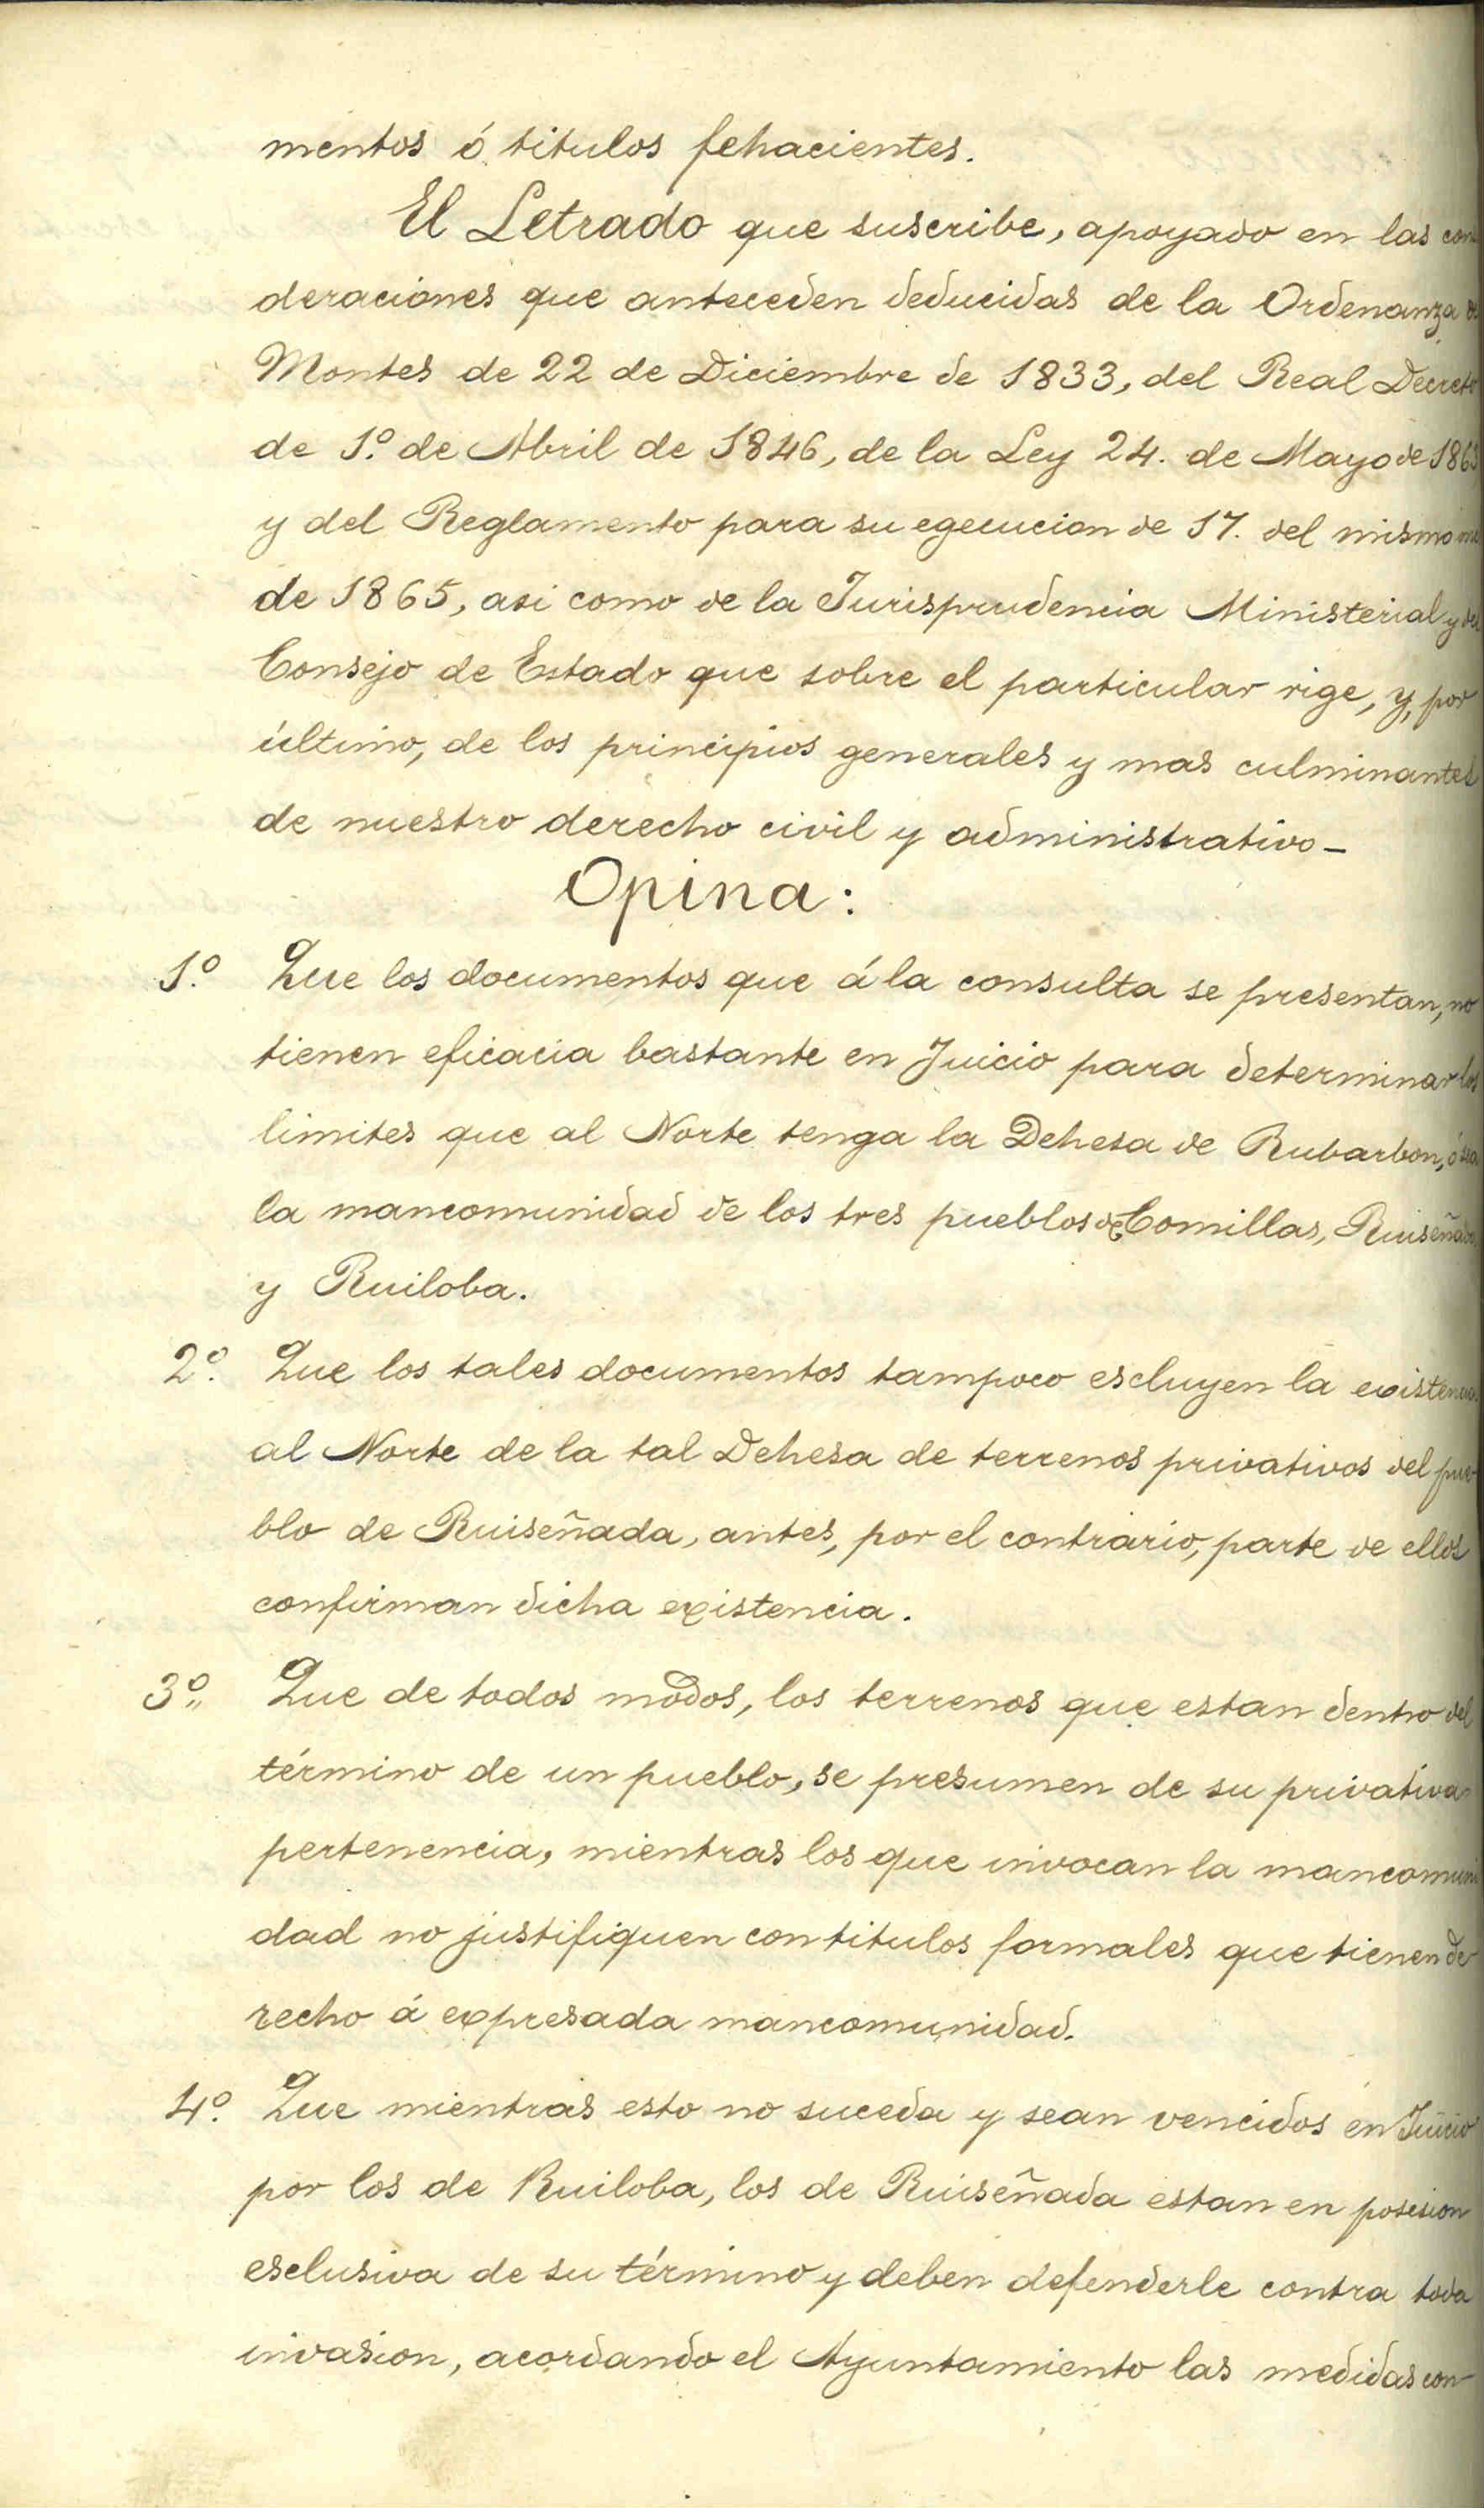 mentos ó titulos fehacientes.
El Letrado que suscribe, apoyado en las con
deraciones que anteceden deducidas de la Ordenanza de
Montes de 22 de Diciembre de 1833, del Real Decreto
de 1º. de Abril de 1846, de la Ley 24. de Mayo de 1863
y del Reglamento para su egecucion de 17. del mismo
de 1865, asi como de la Jurisprudencia Ministerial y del
Consejo de Estado que sobre el particular rige, y, por
último, de los principios generales y mas culminantes
de nuestro derecho civil y administrativo_
Opina:
1º. Que los documentos que á la consulta se presentan, no
tienen eficacia bastante en Juicio para determinar los
limites que al Norte tenga la Dehesa de Rubarbon, ó sea
la mancomunidad de los tres pueblos de Comillas, Ruiseñada
y Ruiloba.
2º. Que los tales documentos tampoco escluyen la existencia
al Norte de la tal Dehesa de terrenos privativos del pue-
blo de Ruiseñada, antes, por el contrario, parte de ellos
confirman dicha existencia.
3º. Que de todos modos, los terrenos que estan dentro del
término de un pueblo, se presumen de su privativa
pertenencia, mientras los que invocan la mancomuni
dad no justifiquen con titulos formales que tienen de-
recho á expresada mancomunidad.
4º. Que mientras esto no suceda y sean vencidos en Juicio
por los de Ruiloba, los de Ruiseñada estan en posesion
esclusiva de su término y deben defenderle contra toda
invasion, acordando el Ayuntamiento las medidas con-